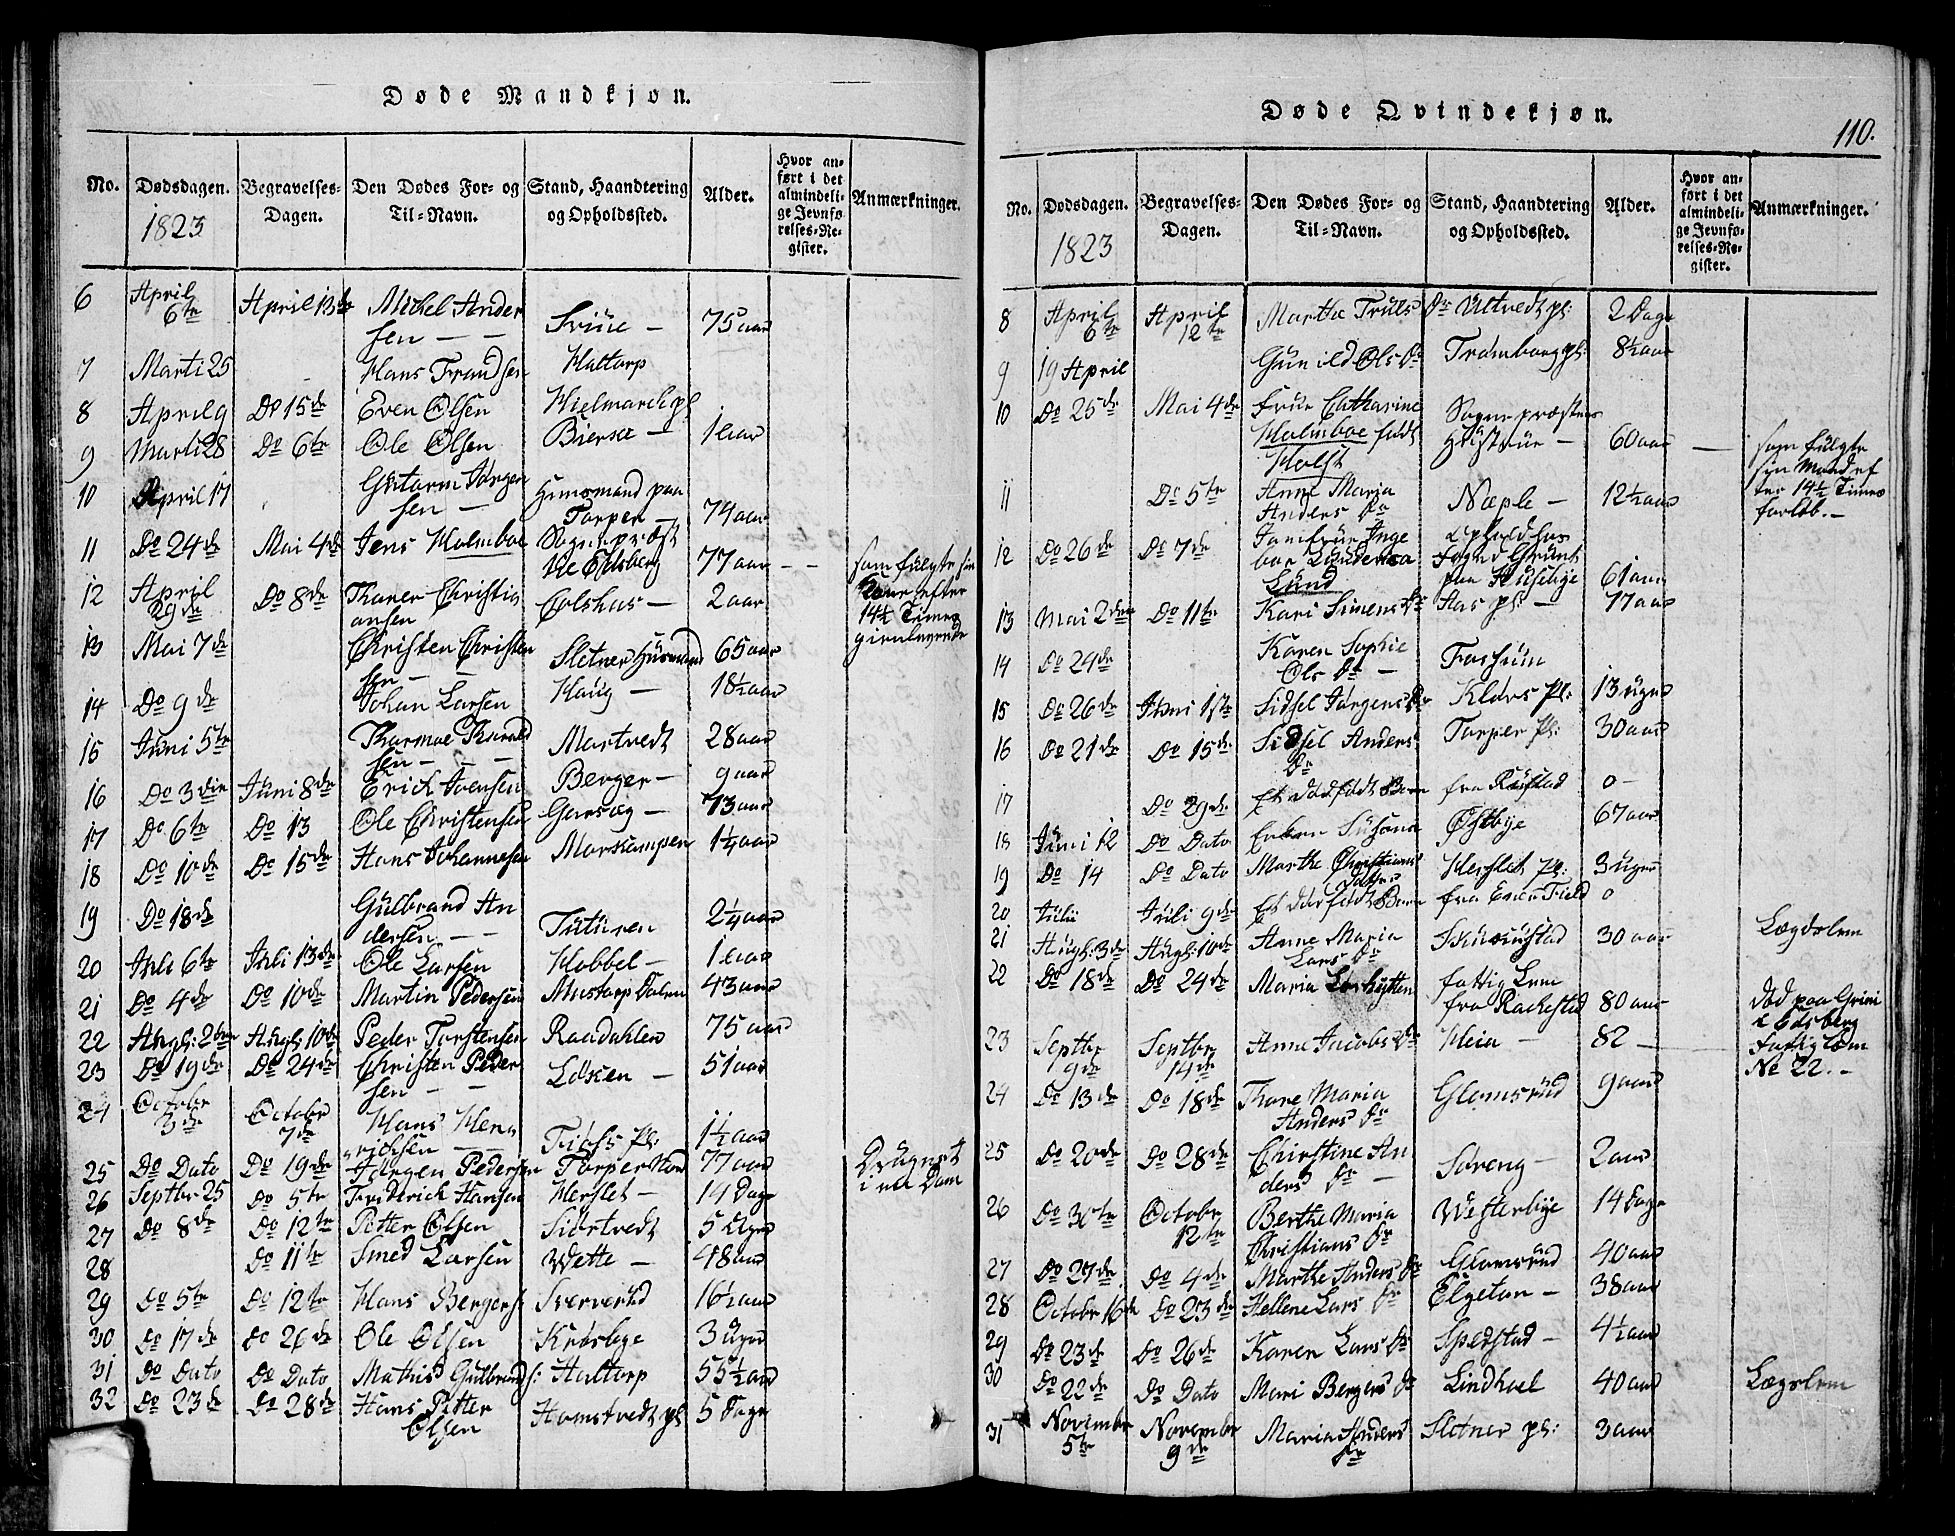 Døde Mandkjøn.
No. Dødsdagen. 1823 Begravelses-Dagen. Den Dødes For- og Til-Navn. Stand, Haandtering og Opholdssted. Alder. Hvor anført i det almindelige Jevnførelses-Register. Anmærkninger.
6 April 6te April 13de Michel Andersen Svüne 75 aar
7 Marti 25 Hans Frandsen Haltorp
8 April 9 Do 15de Even Olsen Hielmark pl
9 Marti 28 Do 6te Ole Olsen Biersee 1 aar
10 April 17 Guttorm Jørgensen Huusmand paa Torper 74 aar
11 Do 24de Mai 4de Jens Holmboe Sogne præst til Edsberg 77 aar som fulgte sin Kone efter 14½ Times
12 April 29de Do 8de Christiansen Colshus 2 aar
13 Mai 7de Christen Christensen Sletner Husmand 65 aar
14 Do 9de Johan Larsen Haug 18½ aar
15 Juni 5te Thormoe Martvedt 28 aar
16 Do 3die Juni 8de Erick Iversen Berger 9 aar
17 Do 6te Do 13 Ole Christensen Gaasøg 73 aar
18 Do 10de Do 15de Hans Johannesen Morskampen 1¼ aar
19 Do 18de Gulbrand Andersen Tuturen 2¼ aar
20 Juli 6te Juli 13de Ole Larsen Hobbel 1 aar
21 Do 4de Do 10de Martin Pedersen Mustorp Dalen 43 aar
22 Augs: 2den Augs: 10de Peder Torstensen Raadahlen 75 aar
23 Do 19de Do 24de Christen Pedersen Løken 51 aar
24 October 3de October 7de Hans Henrichsen Fiøss Pl: 1½ aar
25 Do Dato Do 19de Jørgen Pedersen Torper 77 aar Drugnet i en Dam
26 Septbr 25 Do 5te Friderich Hansen Herslet 14 Dage
27 Do 8de Do 12te Petter Olsen Siørtvedt 5 Uger
28 Do 11te Smed Larsen Wette 48 aar
29 Do 5te Do 12te Hans Bergers: Sververud 16½ aar
30 Do 17de Do 26de Ole Olsen Krosbye 3 Uger
31 Do Dato Do Dato Mathis Gulbrands: Haltorp 55½ aar
32 Do 23de Do 28de Hans Petter Olsen Homstvedt pl 5 Dage
Døde Qvindekjøn.
110.
No. Dødsdagen. 1823 Begravelses-Dagen. Den Dødes For- og Til-Navn. Stand, Haandtering og Opholdssted. Alder. Hvor anført i det almindelige Jevnførelses-Register. Anmærkninger.
8 April 6te April 12te Marthe Truls Dr Ultvedt pl: 2 Dage
9 19 April Gunild Ols Dr Tromborg pl: 8½ aar
10 Do 25de Mai 4de Frue Catharine Holmboe født Holst Sogne præstens Hustrue 60 aar som fulgte sin Mand efter 14½ Times forløb.
11 Do 5te Anne Maria Anders Dr Næple 12½ aar
12 Do 26de Do 7de Jomfrue Ingebor Lund Ophold hos Foged Grünt paa Husebye 61 aar
13 Mai 2den Do 11te Kari Simens Dr Aas pl: 17 aar
14 Do 24de Karen Sophie Ols Dr Fossum
15 Do 26de Juni 1ste Sidsel Jørgens Dr Kløvs Pl: 13 uger
16 Do 21de Do 15de Sidsel Anders Dr Torper Pl: 30 aar
17 Do 29de Et dødfødt Barn fra Rustad 0
18 Juni 12 Do Dato Enken Susana Østbye 67 aar
19 Do 14 Do Dato Marthe Christians Datter Herslet Pl: 3 uger
20 Julii Juli 9de Et dødfødt Barn fra 0
21 Augs: 3de Augs: 10de Anne Maria Lars Dr 30 aar Lægdslem
22 Do 18de Do 24de Maria fattig Lem fra Rackestad 80 aar død paa Grini i Edsberg Fattiglem No 22.
23 Septbr 9de Septbr 14de Anne Jacobs Dr Heia 82
24 Do 13de Do 18de Thore Maria Anders Dr Glomsrud 9 aar
25 Do 20de Do 28de Christine Anders Dr Søreng 2 aar
26 Do 30te October 12te Berthe Maria Christians Dr Westerbye 14 Dage
27 Do 27de Do 4de Marthe Anders Dr Glomsrud 40 aar
28 October 16de Do 23de Hellene Lars Dr Elgetun 38 aar
29 Do 23de Do 26de Karen Lars Dr Spedstad 4½ aar
30 Do 22de Do Dato Mari Bergers Dr Lindhoel 40 aar Lægslem
31 November 5te November 9de Maria Anders Dr Sletner pl: 3 aar